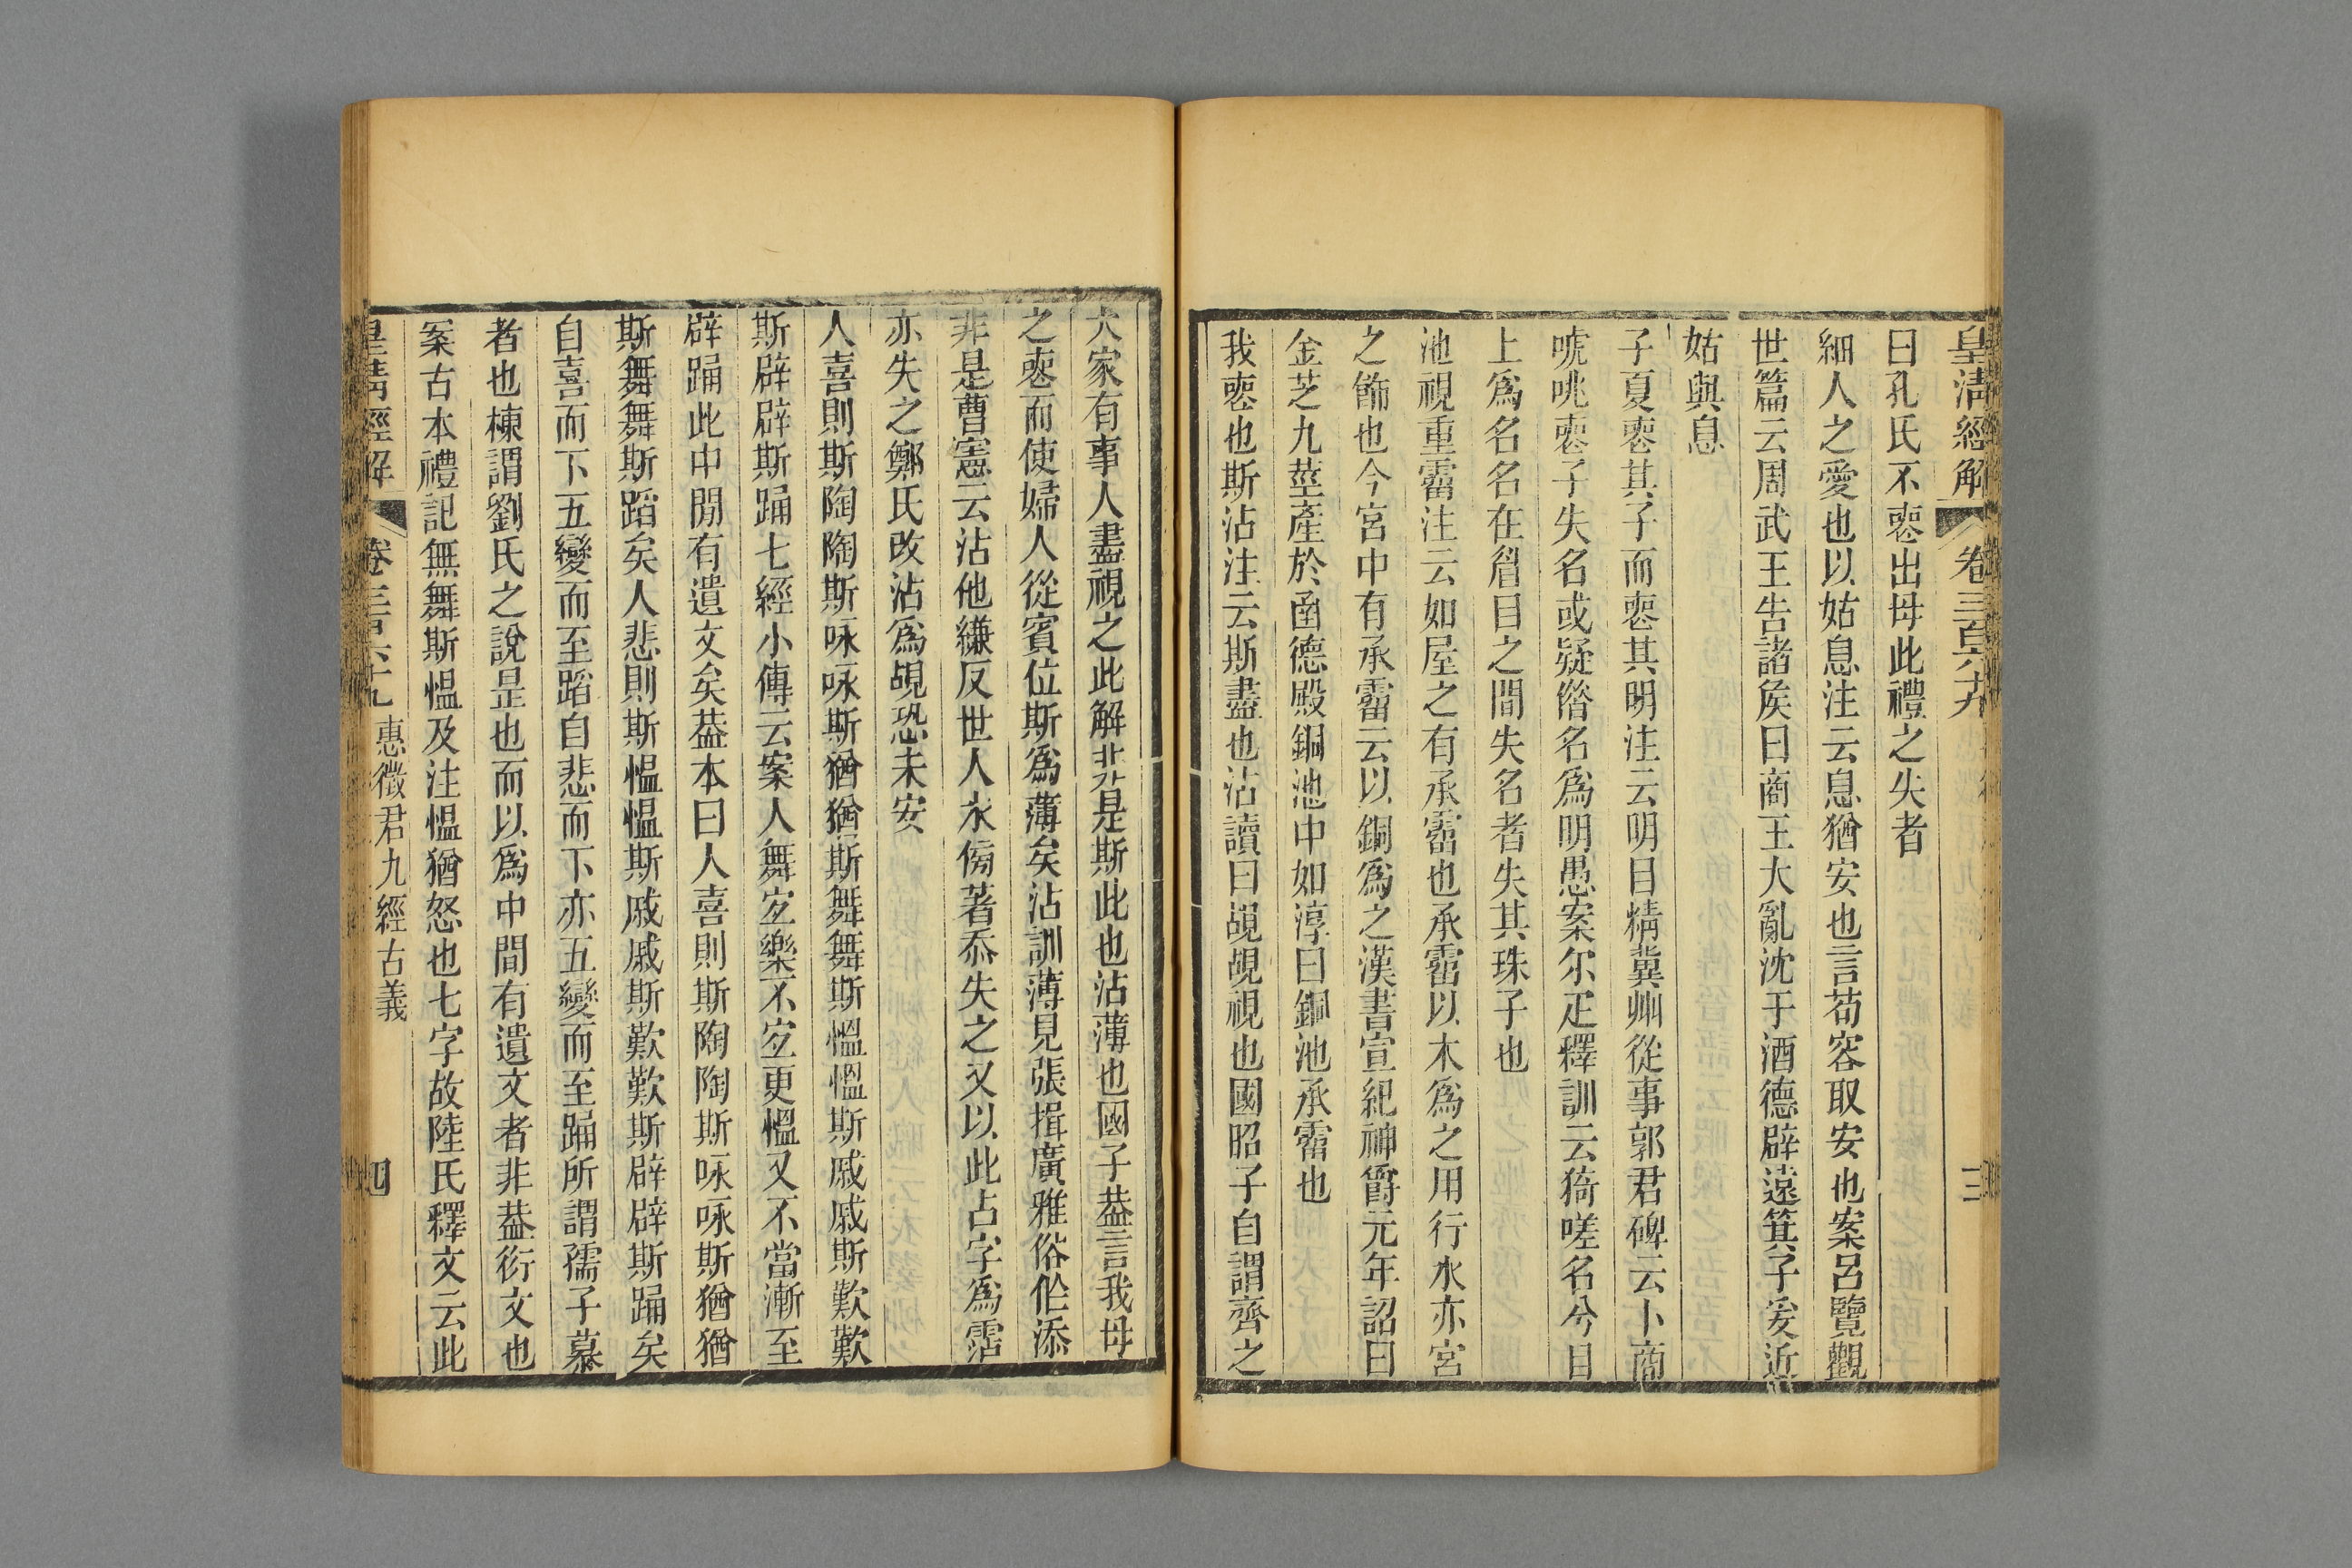 皇清經解 卷三百六十九 三
曰孔氏不喪出母此禮之失者
細人之愛也以姑息注云息猶安也言苟容取安也案呂覽觀
世篇云周武王告諸矦曰商王大亂沈于酒德辟遠箕子爰近
姑與息
子夏喪其子而喪其明注云明目精冀州從事郭君碑云卜商
唬咷喪子失名或疑俗名為明愚案尔疋釋訓云猗嗟名兮目
上爲名名在眉目之間失名者失其珠子也
池視重霤注云如屋之有承霤也承霤以木爲之用行水亦宮
之飾也今宮中有承霤云以銅爲之漢書宣紀神爵元年詔曰
金芝九莖產於函德殿銅池中如淳曰銅池承霤也
我喪也斯沾注云斯盡也沾讀曰覘覘視也國昭子自謂齊之
大家有事人盡視之此解非是斯此也沾薄也國子葢言我母
之喪而使婦人從賓位斯爲薄矣沾訓薄見張揖廣雅俗作添
非是曹憲云沾他縑反世人水傍著忝失之又以此占字爲霑
亦失之鄭氏改沾爲覘恐未安
人喜則斯陶陶斯咏咏斯猶猶斯舞舞斯慍慍斯戚戚斯歎歎
斯辟辟斯踊七經小傳云案人舞宐樂不宐更慍又不當漸至
辟踊此中閒有遺文矣葢本曰人喜則斯陶陶斯咏咏斯猶猶
斯舞舞斯蹈矣人悲則斯慍慍斯戚戚斯歎歎斯辟辟斯踊矣
自喜而下五變而至蹈自悲而下亦五變而至踊所謂孺子慕
者也棟謂劉氏之說是也而以爲中間有遺文者非葢衍文也
案古本禮記無舞斯慍及注慍猶怒也七字故陸氏釋文云此
皇清經解 卷三百六十九 惠徵君九經古義 四